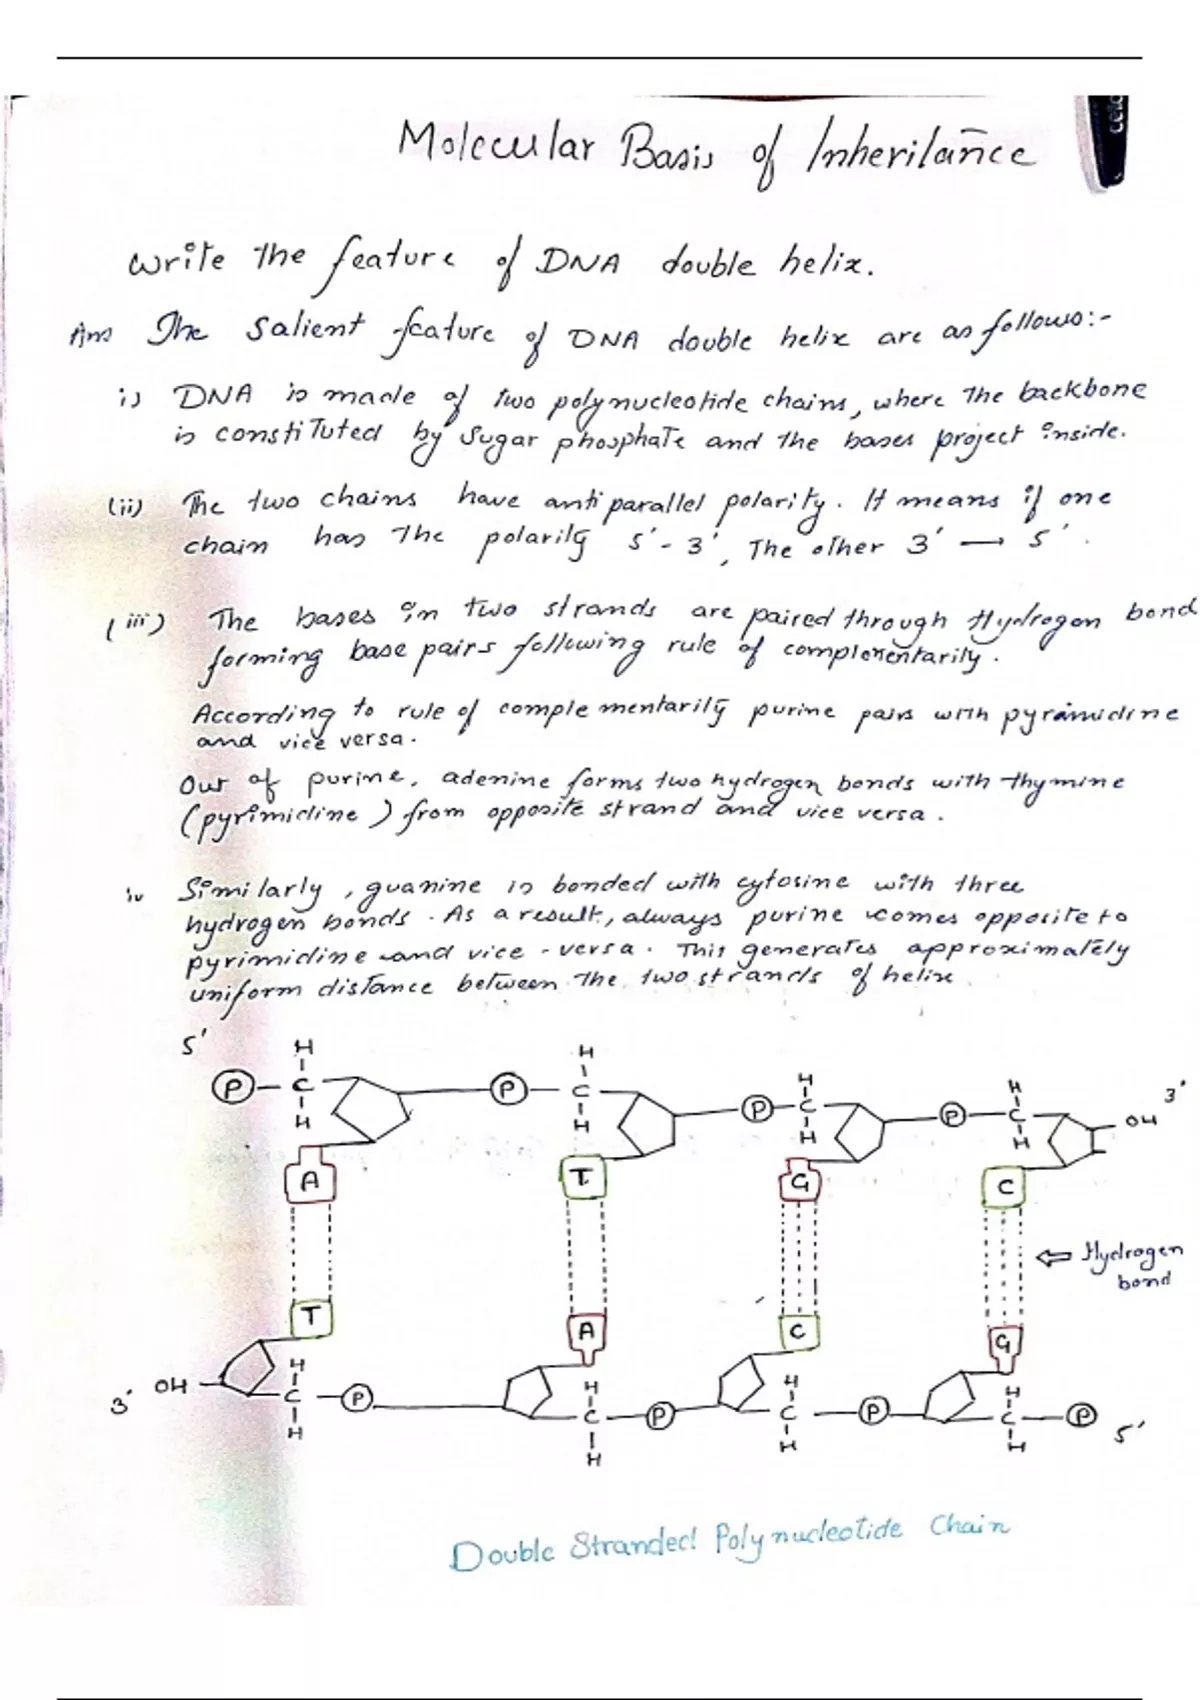 celo
Molecular Basis of Inheritance
Write the feature of DNA double helix.
Ans The Salient feature of DNA double helix are as follows:-
i) DNA is made of two polynucleotide chains, where the backbone
is constituted by sugar phosphate and the bases project inside.
(ii) The two chains have anti parallel polarity. It means if one
chain has the polarity 5' - 3', The other 3' → 5'.
(iii) The bases in two strands are paired through Hydrogen bond
forming base pairs following rule of complementarity.
According to rule of complementarity purine pairs with pyramidine
and vice versa.
Out of purine, adenine forms two hydrogen bonds with thymine
(pyrimidine) from opposite strand and vice versa.
iv Similarly, guanine is bonded with cytosine with three
hydrogen bonds. As a result, always purine comes opposite to
pyrimidine and vice - versa. This generates approximately
uniform distance between the two strands of helix
5' H H H H 3'
P C P C P C P C OH
H H H H
A T G C
Hydrogen
bond
T A C G
3' OH H H H H
C P C P C P C P 5'
H H H H
Double Stranded Polynucleotide Chain